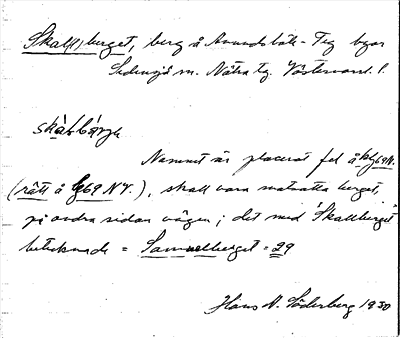 Skal(l)berget, berg å Anundsböle-Teg byar
Sidensjö sn. Nätra tg. Västernorrl. l.
skàl̀bä̀rje
Namnet är placerat fel å kbl 69 N.
(rätt å 69 NV.), skall vara motsatta berget,
på andra sidan vägen; det med "Skallberget"
betecknade = Samuelberget = 29
Hans N. Söderberg 1930